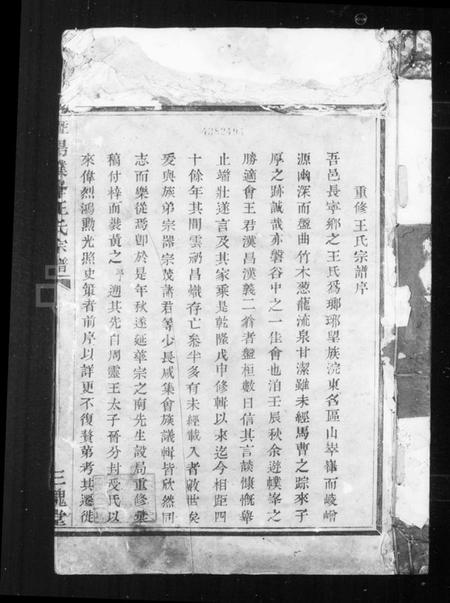 4282494
重修王氏宗譜序
吾邑長寧鄉之王氏爲瑯琊望族浣東名區山崒嵂而崚嶒
源幽深而盤曲竹木葱蘢流泉甘潔雖未經馬曹之踪來子
厚之跡誠哉亦磐谷中之一佳會也洎壬辰秋余遊幞峯之
勝適會王君漢昌漢義二翁者盤桓數日信其言談慷慨舉
止端壯遂言及其家乘是乾隆戊申修輯以來迄今相距四
十餘年其間雲礽昌熾存亡叅半多有未經載入者敢世矣
爰與族弟宗器宗茂諸君等少長咸集會族議輯皆欣然同
志而樂從焉即於是年秋遂延華宗之南先生設局重修乘
稿付梓而裝黃之 遡其先自周靈王太子晉分封受氏以
來偉烈鴻勳光照史策者前序以詳更不復贅第考其遷徙
暨陽幞峯王氏宗譜
三槐堂